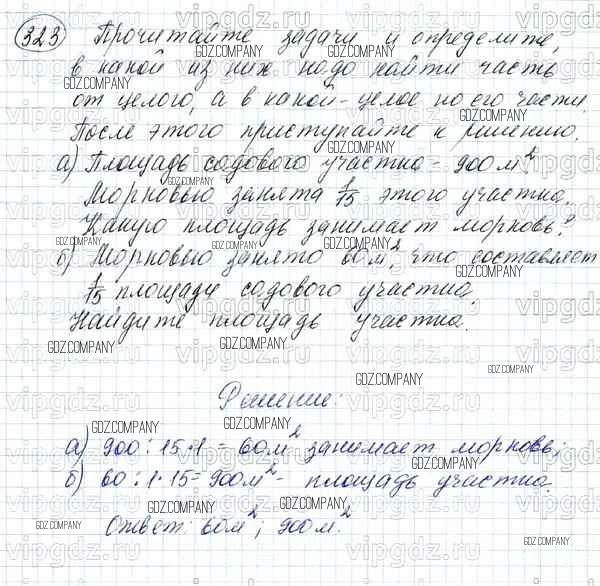 323 Прочитайте задачи и определите,
в какой из них надо найти часть
от целого, а в какой - целое по его части.
После этого приступайте к решению.
а) Площадь садового участка - 900 м²
Морковью занята 1/15 этого участка.
Какую площадь занимает морковь?
б) Морковью занято 60 м², что составляет
1/15 площади садового участка.
Найдите площадь участка.
Решение:
а) 900 : 15 · 1 = 60 м² занимает морковь;
б) 60 : 1 · 15 = 900 м² - площадь участка.
Ответ: 60 м²; 900 м².
GDZ.COMPANY
vipgdz.ru